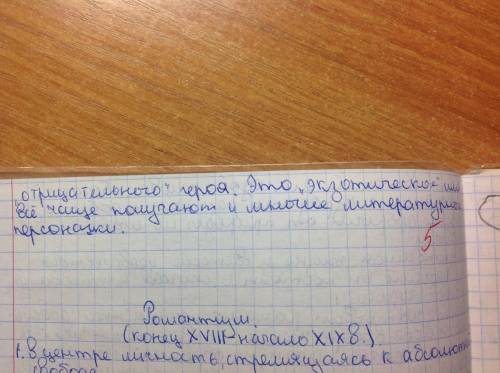 „отрицательного" героя. Это „экзотическое
всё чаще получают и многие литературные
персонажи.
5
Романтизм.
(конец XVIII – начало XIX в.)
1. В центре личность, стремящаяся к абсолютн